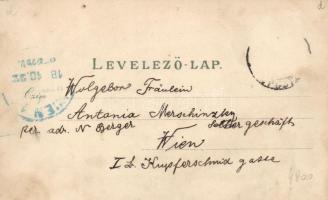 LEVELEZŐ-LAP.
Wolgebon Fräulein
Antania Merschinzky
per adr. N Berger geschäft
Wien
I L. Kupferschmid gasse